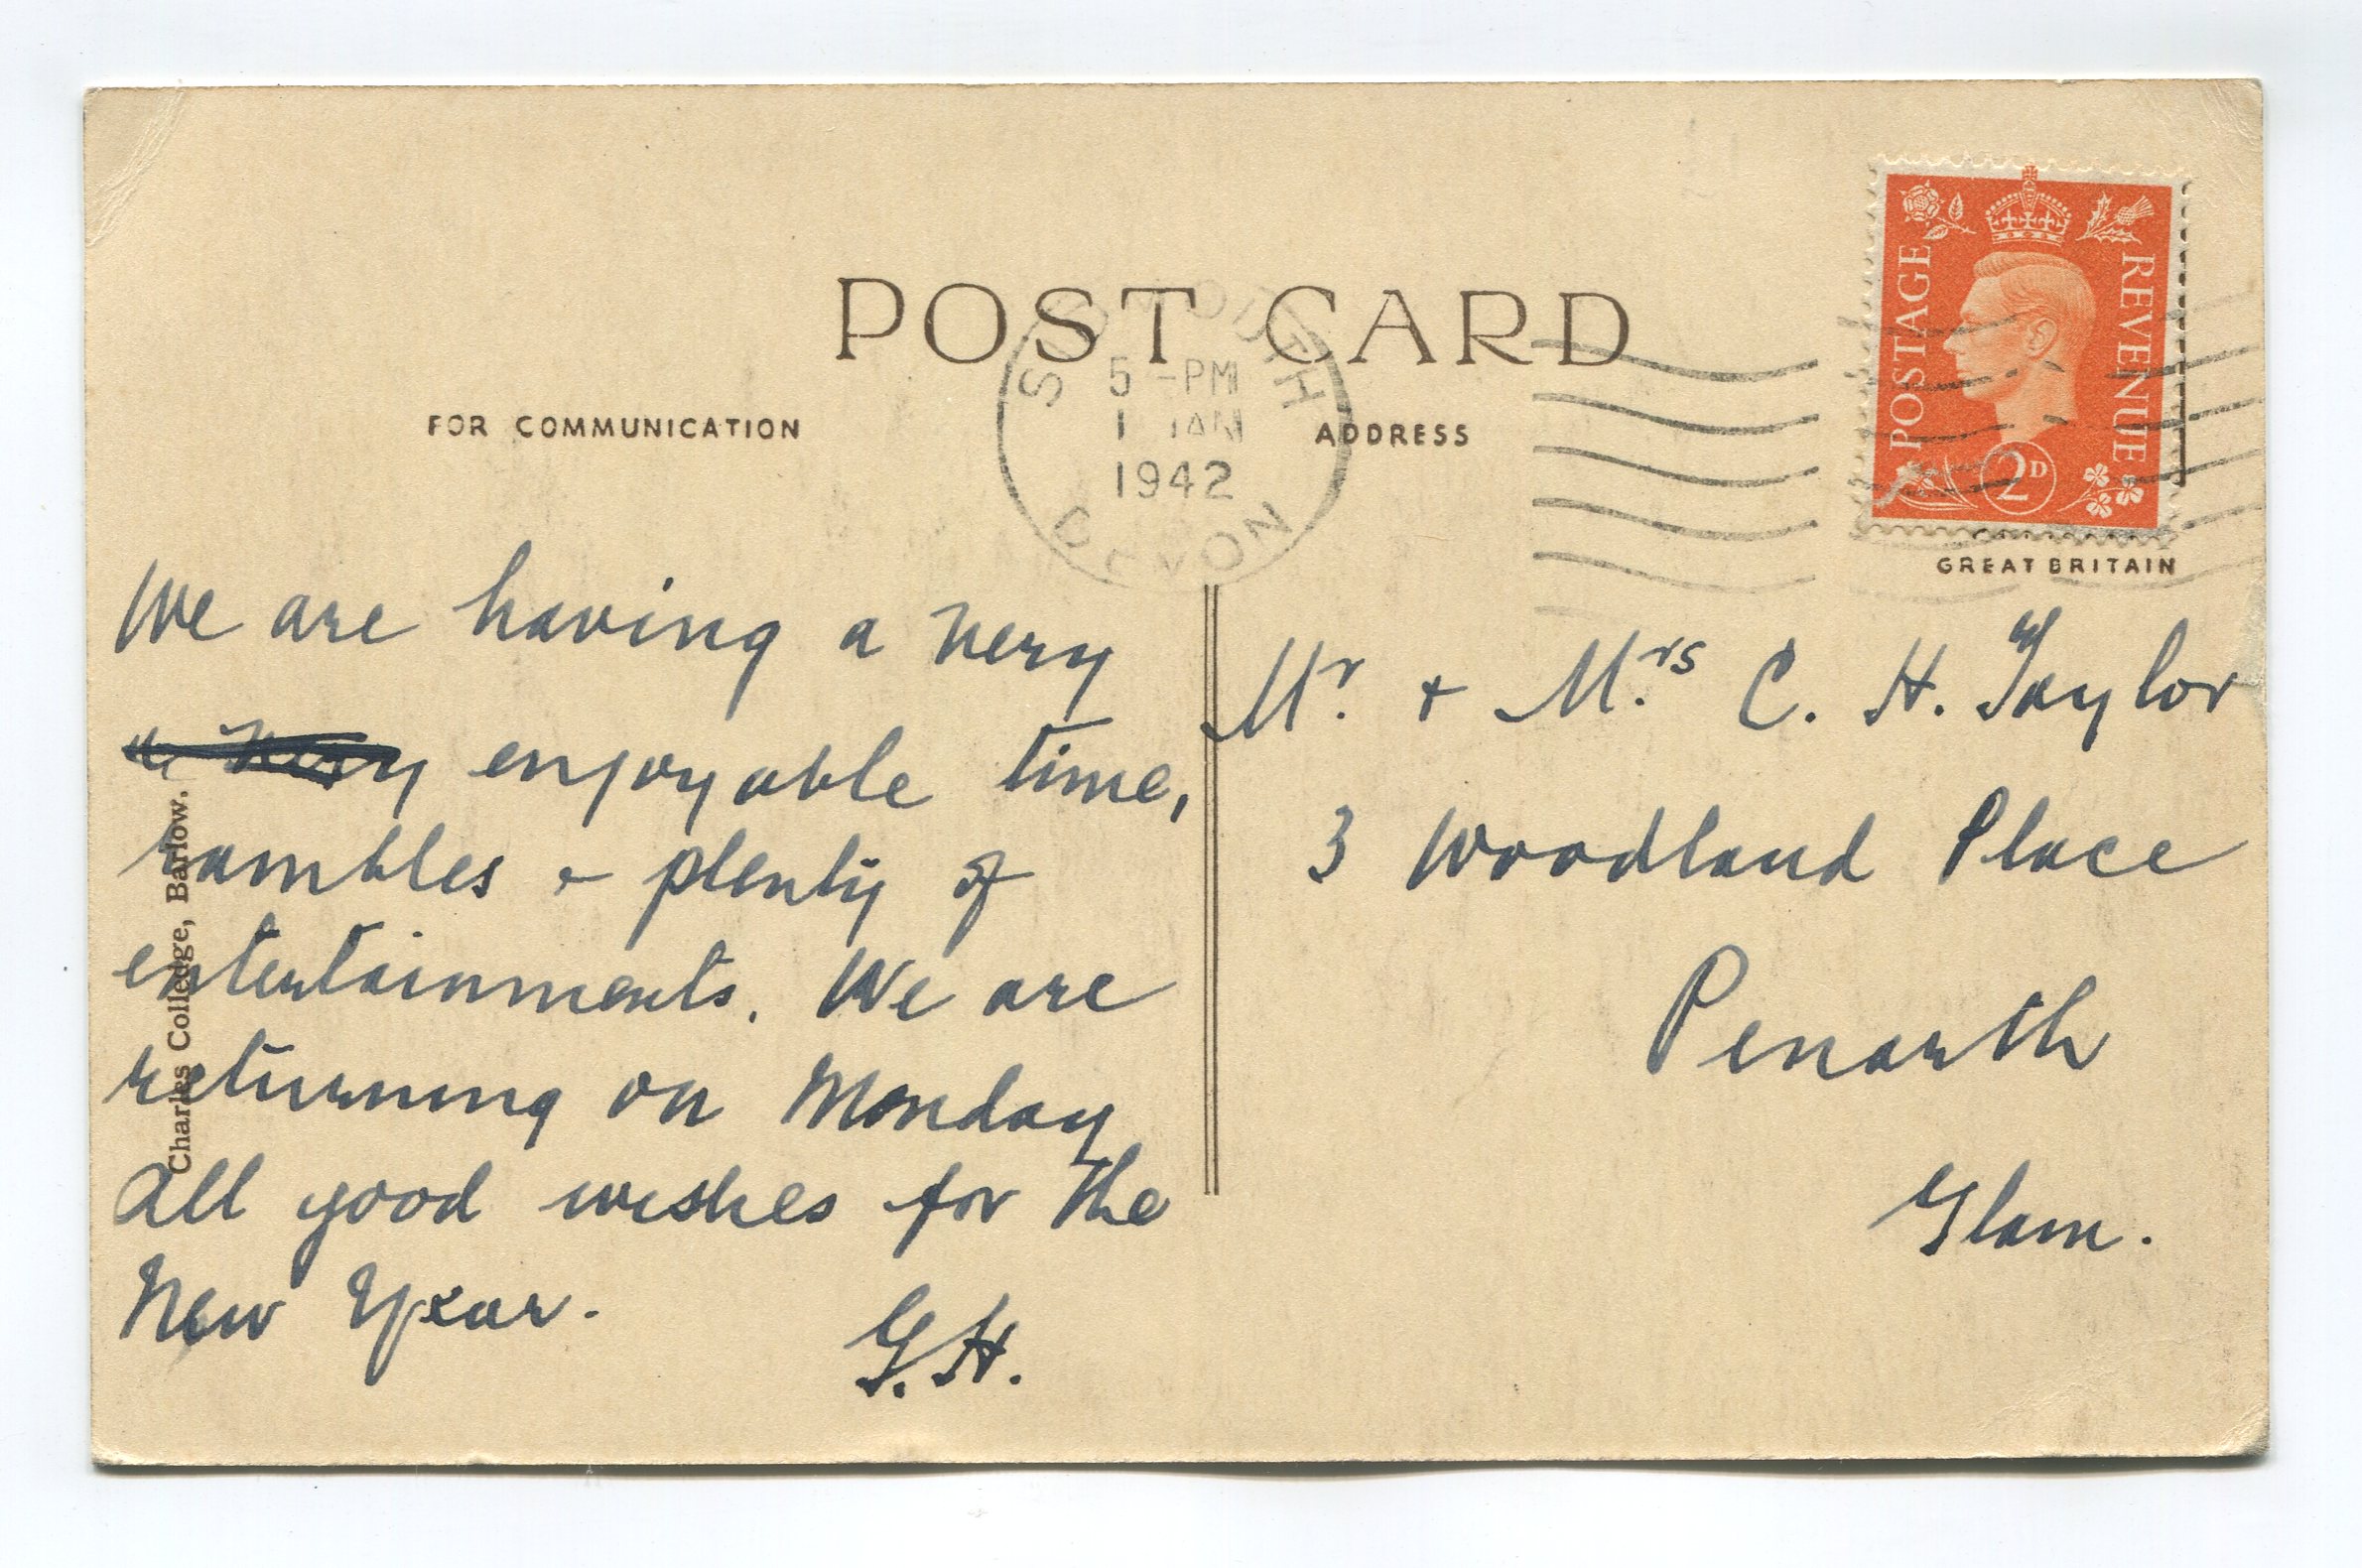 POST CARD
FOR COMMUNICATION
ADDRESS
SIDMOUTH
5 -PM
1 JAN
1942
DEVON
POSTAGE
REVENUE
2D
GREAT BRITAIN
We are having a very
a very enjoyable time,
rambles & plenty of
entertainments. We are
returning on Monday
All good wishes for the
New Year.
G.H.
Charles Colledge, Barlow.
Mr. + Mrs. C. H. Taylor
3 Woodland Place
Penarth
Glam.